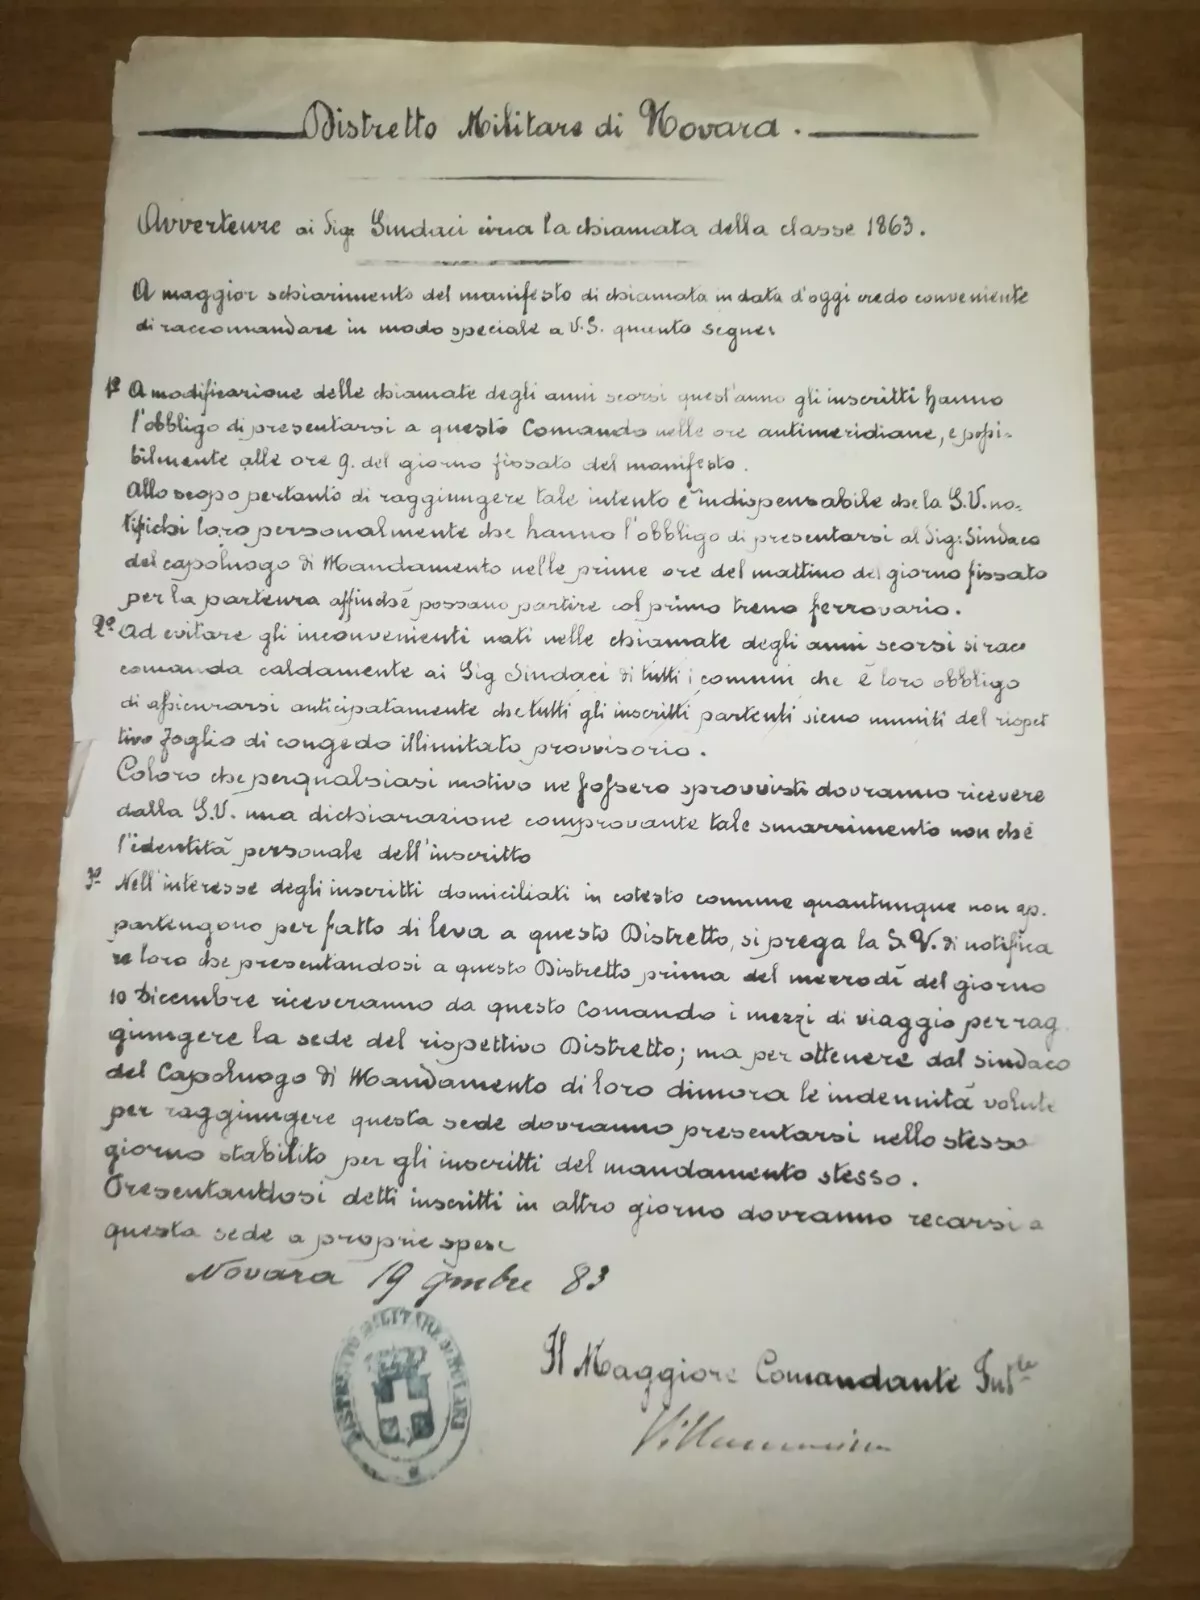 Distretto Militare di Novara.
Avvertenze ai Sig: Sindaci circa la chiamata della classe 1863.
A maggior schiarimento del manifesto di chiamata in data d'oggi credo conveniente
di raccomandare in modo speciale a V.S. quanto segue:
1º A modificazione delle chiamate degli anni scorsi quest'anno gli inscritti hanno
l'obbligo di presentarsi a questo Comando nelle ore antimeridiane, e possi-
bilmente alle ore 9. del giorno fissato del manifesto.
Allo scopo pertanto di raggiungere tale intento è indispensabile che la S.V. no-
tifichi loro personalmente che hanno l'obbligo di presentarsi al Sig: Sindaco
del capoluogo di Mandamento nelle prime ore del mattino del giorno fissato
per la partenza affinchè possano partire col primo treno ferroviario.
2º Ad evitare gli inconvenienti nati nelle chiamate degli anni scorsi si rac
comanda caldamente ai Sig Sindaci di tutti i comuni che è loro obbligo
di assicurarsi anticipatamente che tutti gli inscritti partenti sieno muniti del rispet
tivo foglio di congedo illimitato provvisorio.
Coloro che per qualsiasi motivo ne fossero sprovvisti dovranno ricevere
dalla S.V. una dichiarazione comprovante tale smarrimento non chè
l'identità personale dell'inscritto
3º Nell'interesse degli inscritti domiciliati in cotesto comune quantunque non ap.
partengono per fatto di leva a questo Distretto, si prega la S.V. di notifica
re loro che presentandosi a questo Distretto prima del mezzodì del giorno
10 Dicembre riceveranno da questo Comando i mezzi di viaggio per rag
giungere la sede del rispettivo Distretto; ma per ottenere dal sindaco
del Capoluogo di Mandamento di loro dimora le indennità volute
per raggiungere questa sede dovranno presentarsi nello stesso
giorno stabilito per gli inscritti del mandamento stesso.
Presentandosi detti inscritti in altro giorno dovranno recarsi a
questa sede a proprie spese
Novara 19 9mbre 83
DISTRETTO MILITARE
Il Maggiore Comandante